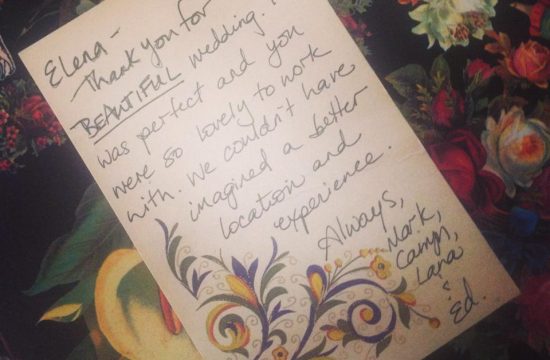 Elena-
Thank you for
BEAUTIFUL wedding.
was perfect and you
were so lovely to work
with. We couldn't have
imagined a better
location and
experience.
Always,
Mark,
Lana
& Ed.